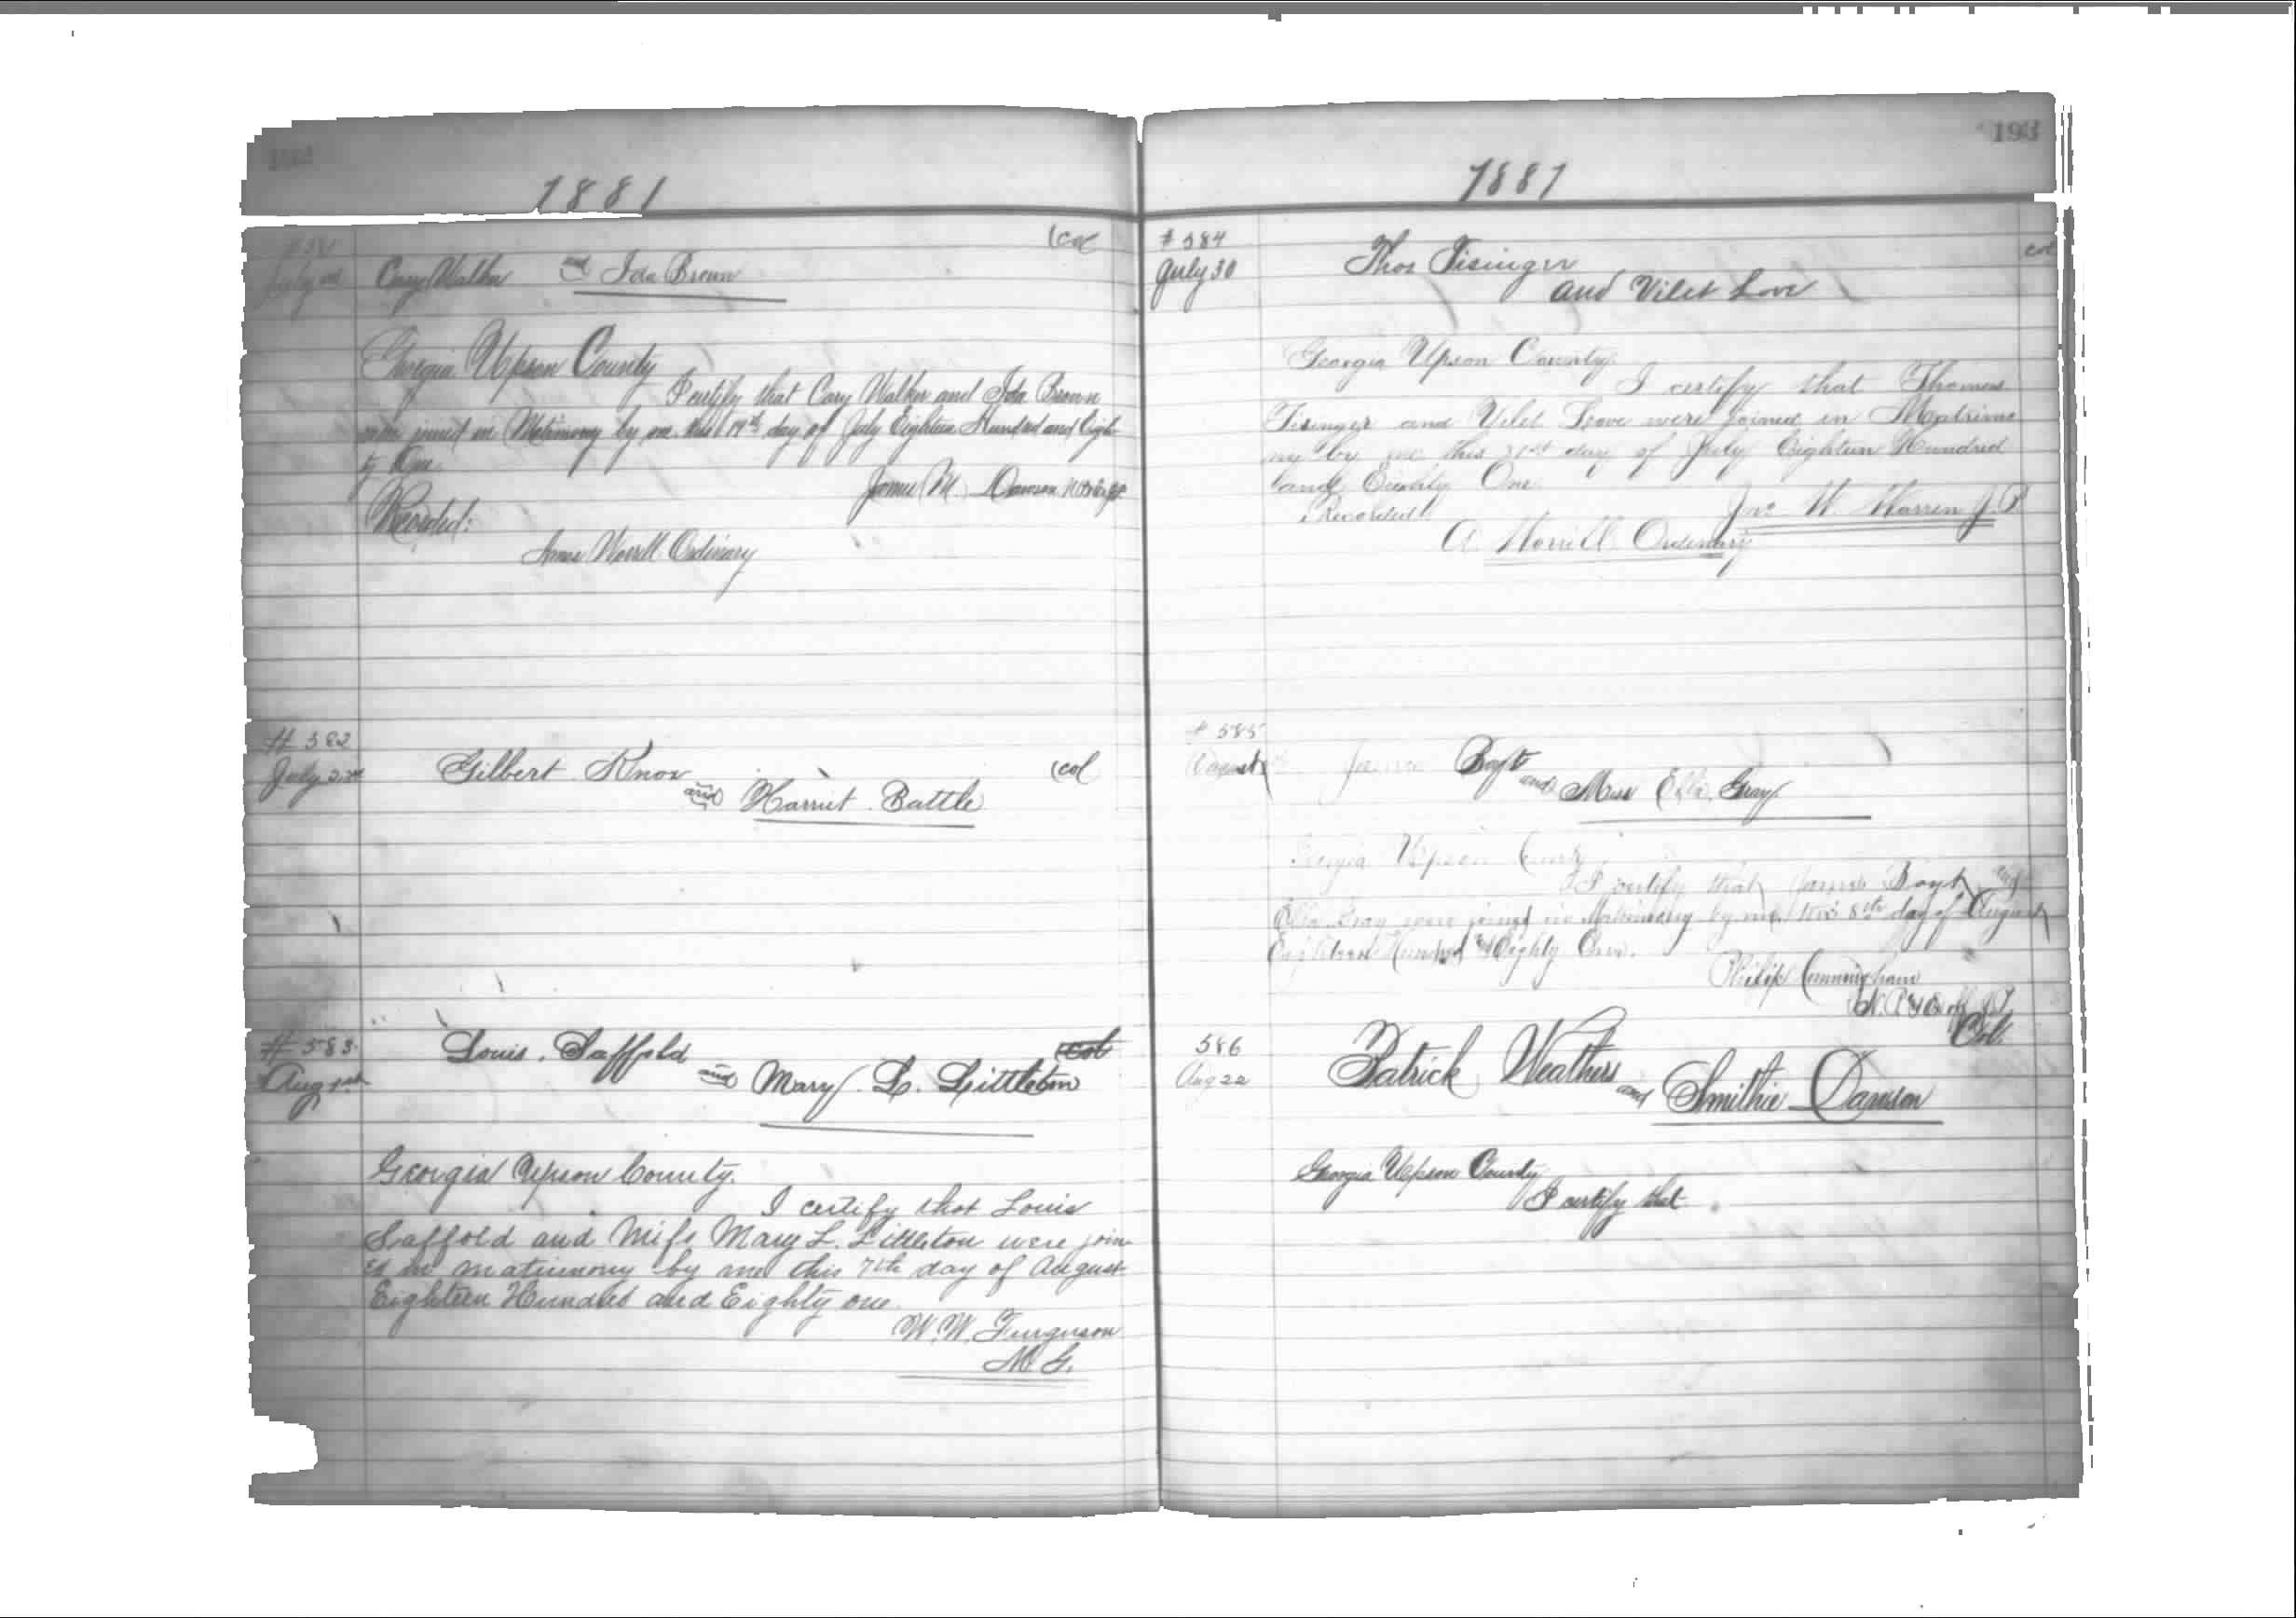 1881
(col
# 581
July
Cary Walker and Ida Brown
Georgia Upson County
I certify that Cary Walker and Ida Brown
were joined in Matrimony by me this 19th day of July Eighteen Hundred and Eigh
ty One
James M. Dawson
Recorded:
Amos Worrill Ordinary
# 582
July
Gilbert Knox (col
and Harriet Battle
# 583
Aug 1st
Louis Saffold col
and Mary L. Littleton
Georgia Upson County.
I certify that Louis
Saffold and Miss Mary L. Littleton were join
ed in matrimony by me this 7th day of August
Eighteen Hundred and Eighty one
W. W. Furguson
M. G.
193
1881
col
# 584
July 30
Thos Tisinger
and Vilet Love
Georgia Upson County
I certify that Thomas
Tisinger and Vilet Love were joined in Matrimo
ny by me this 31st day of July Eighteen Hundred
and Eighty One
Jno W. Warren J.P
Recorded
A. Worrill Ordinary
# 585
August
and Miss Ella Gray
Georgia Upson County
I certify that James and
Ella Gray were joined in Matrimony by me this 8th day of August
Eighteen Hundred and Eighty One.
Philip Cunningham
Col.
586
Aug 22
Patrick Weathers
and Smithie Dawson
Georgia Upson County
I certify that